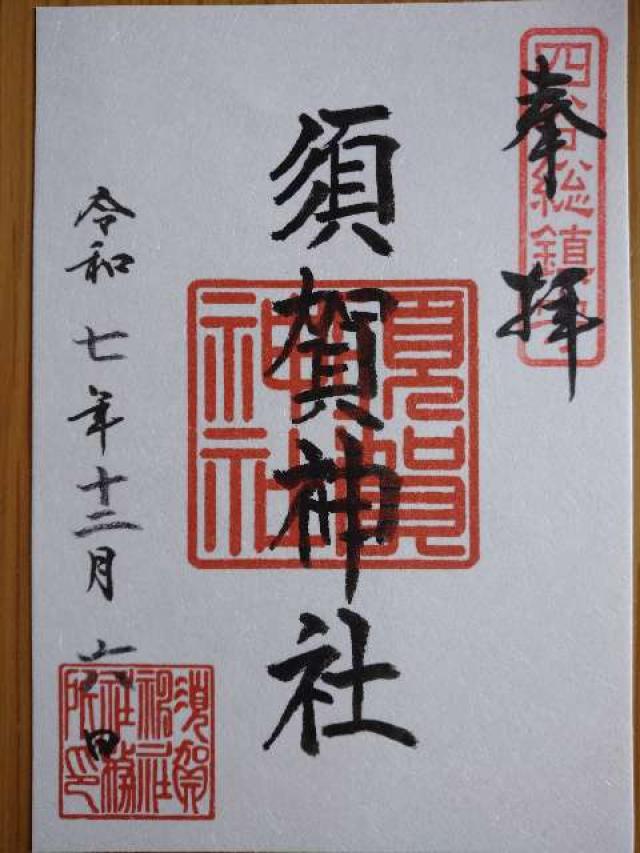 奉拝
四谷総鎮守
須賀神社
須賀神社
令和七年十二月六日
須賀神社社務所印